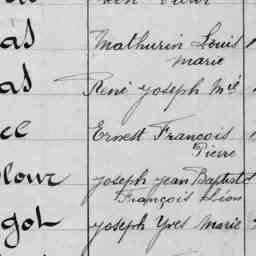 as Mathurin Louis
Marie
as René Joseph Mel
el Ernest François
Pierre
lour Joseph Jean Baptiste
François Léon
got Joseph Yves Marie